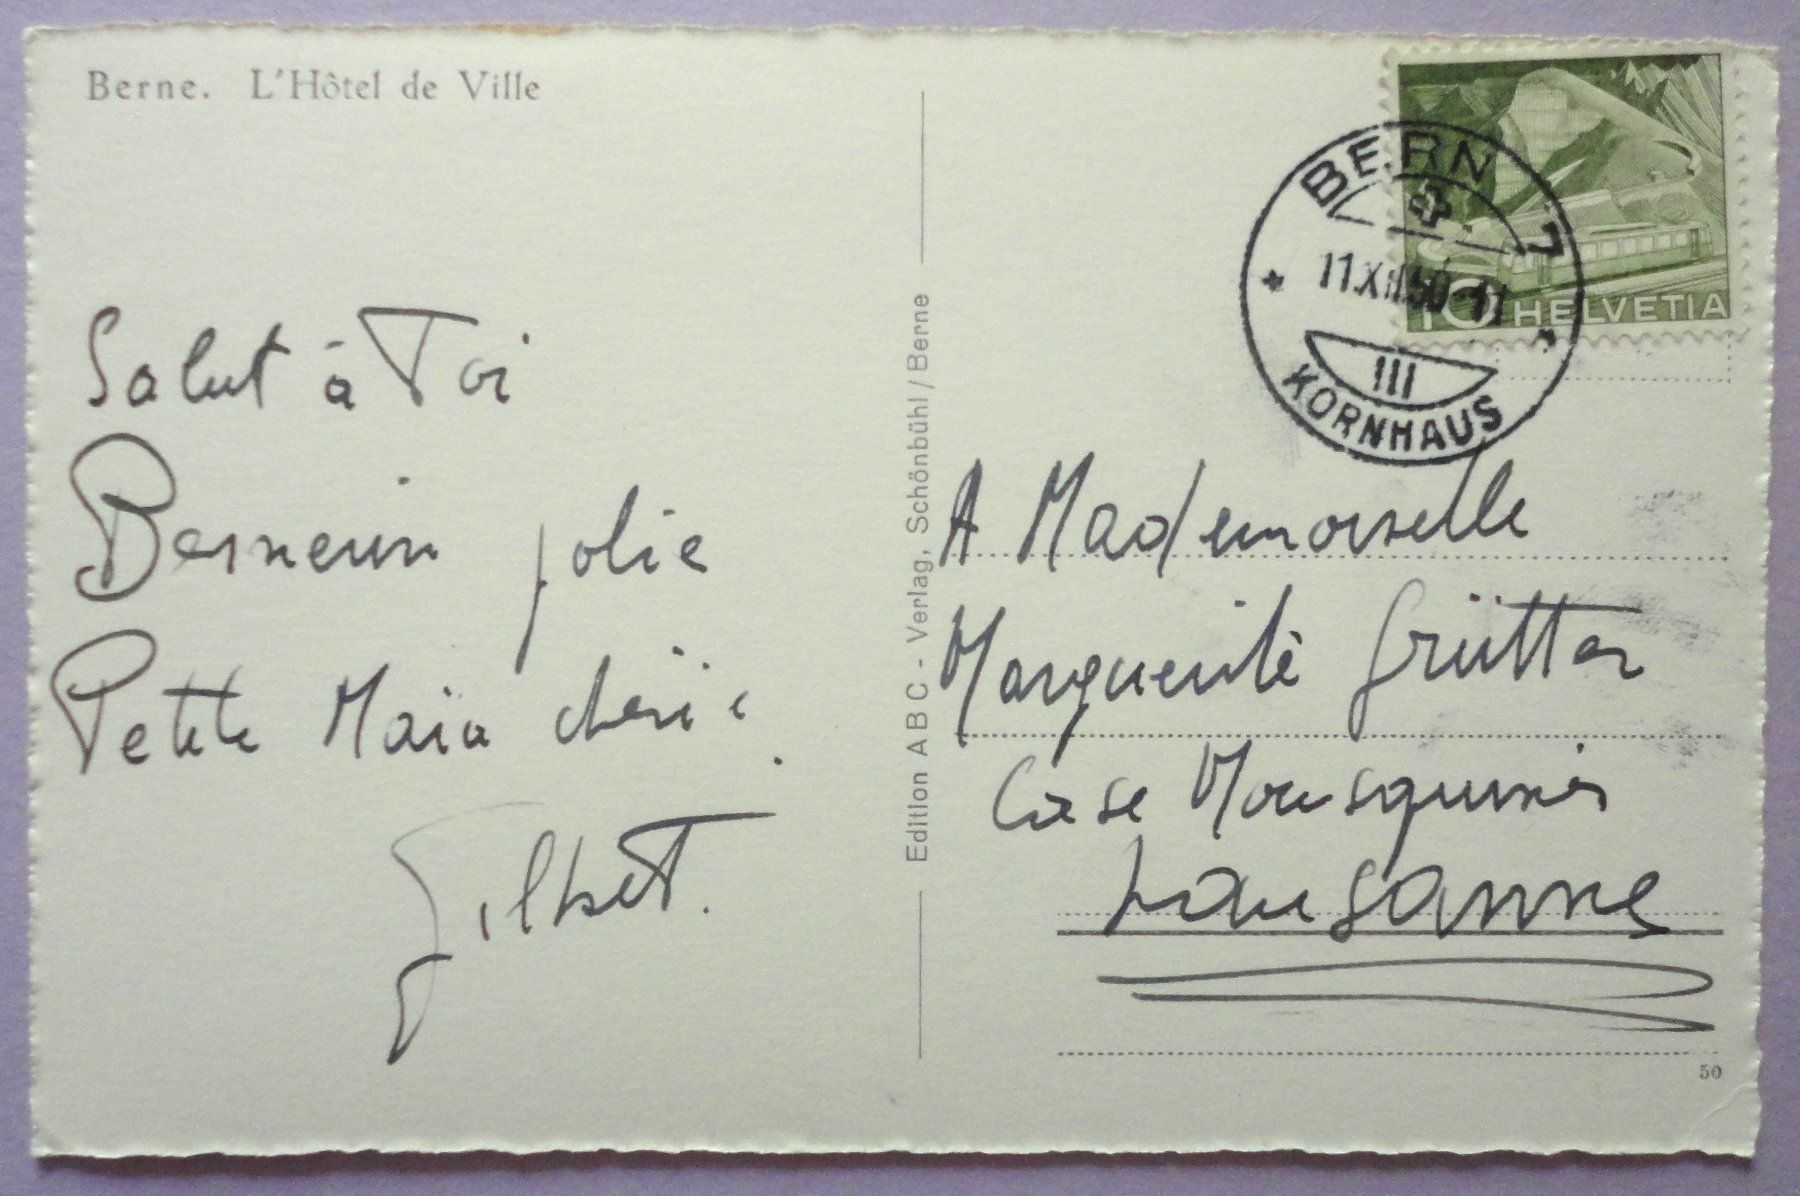 Berne. L'Hôtel de Ville
Salut à Toi
jolie
Petite Maïa chérie.
Gilbert.
Edition ABC - Verlag, Schönbühl / Berne
10 HELVETIA
BERN 7
11.XII.50-11
III
KORNHAUS
A Mademoiselle
Marguerite Grütter
Case Mousquines
Lausanne
50